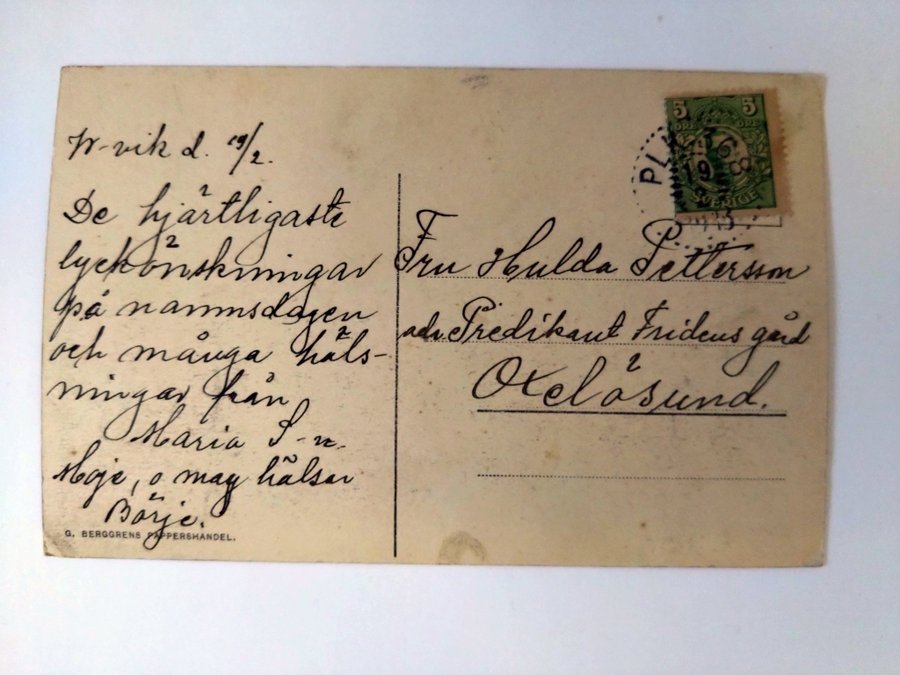 W-vik d. 19/2.
De hjärtligaste
lyckönskningar
på namnsdagen
och många häls-
ningar från
Maria S-n.
Moje, o may hälsar
Börje.
G. BERGGRENS PAPPERSHANDEL.
5 5
ÖRE ÖRE
SVERIGE
PLK 368
19
Fru Hulda Pettersson
adr. Predikant Fridens gård
Oxelösund.